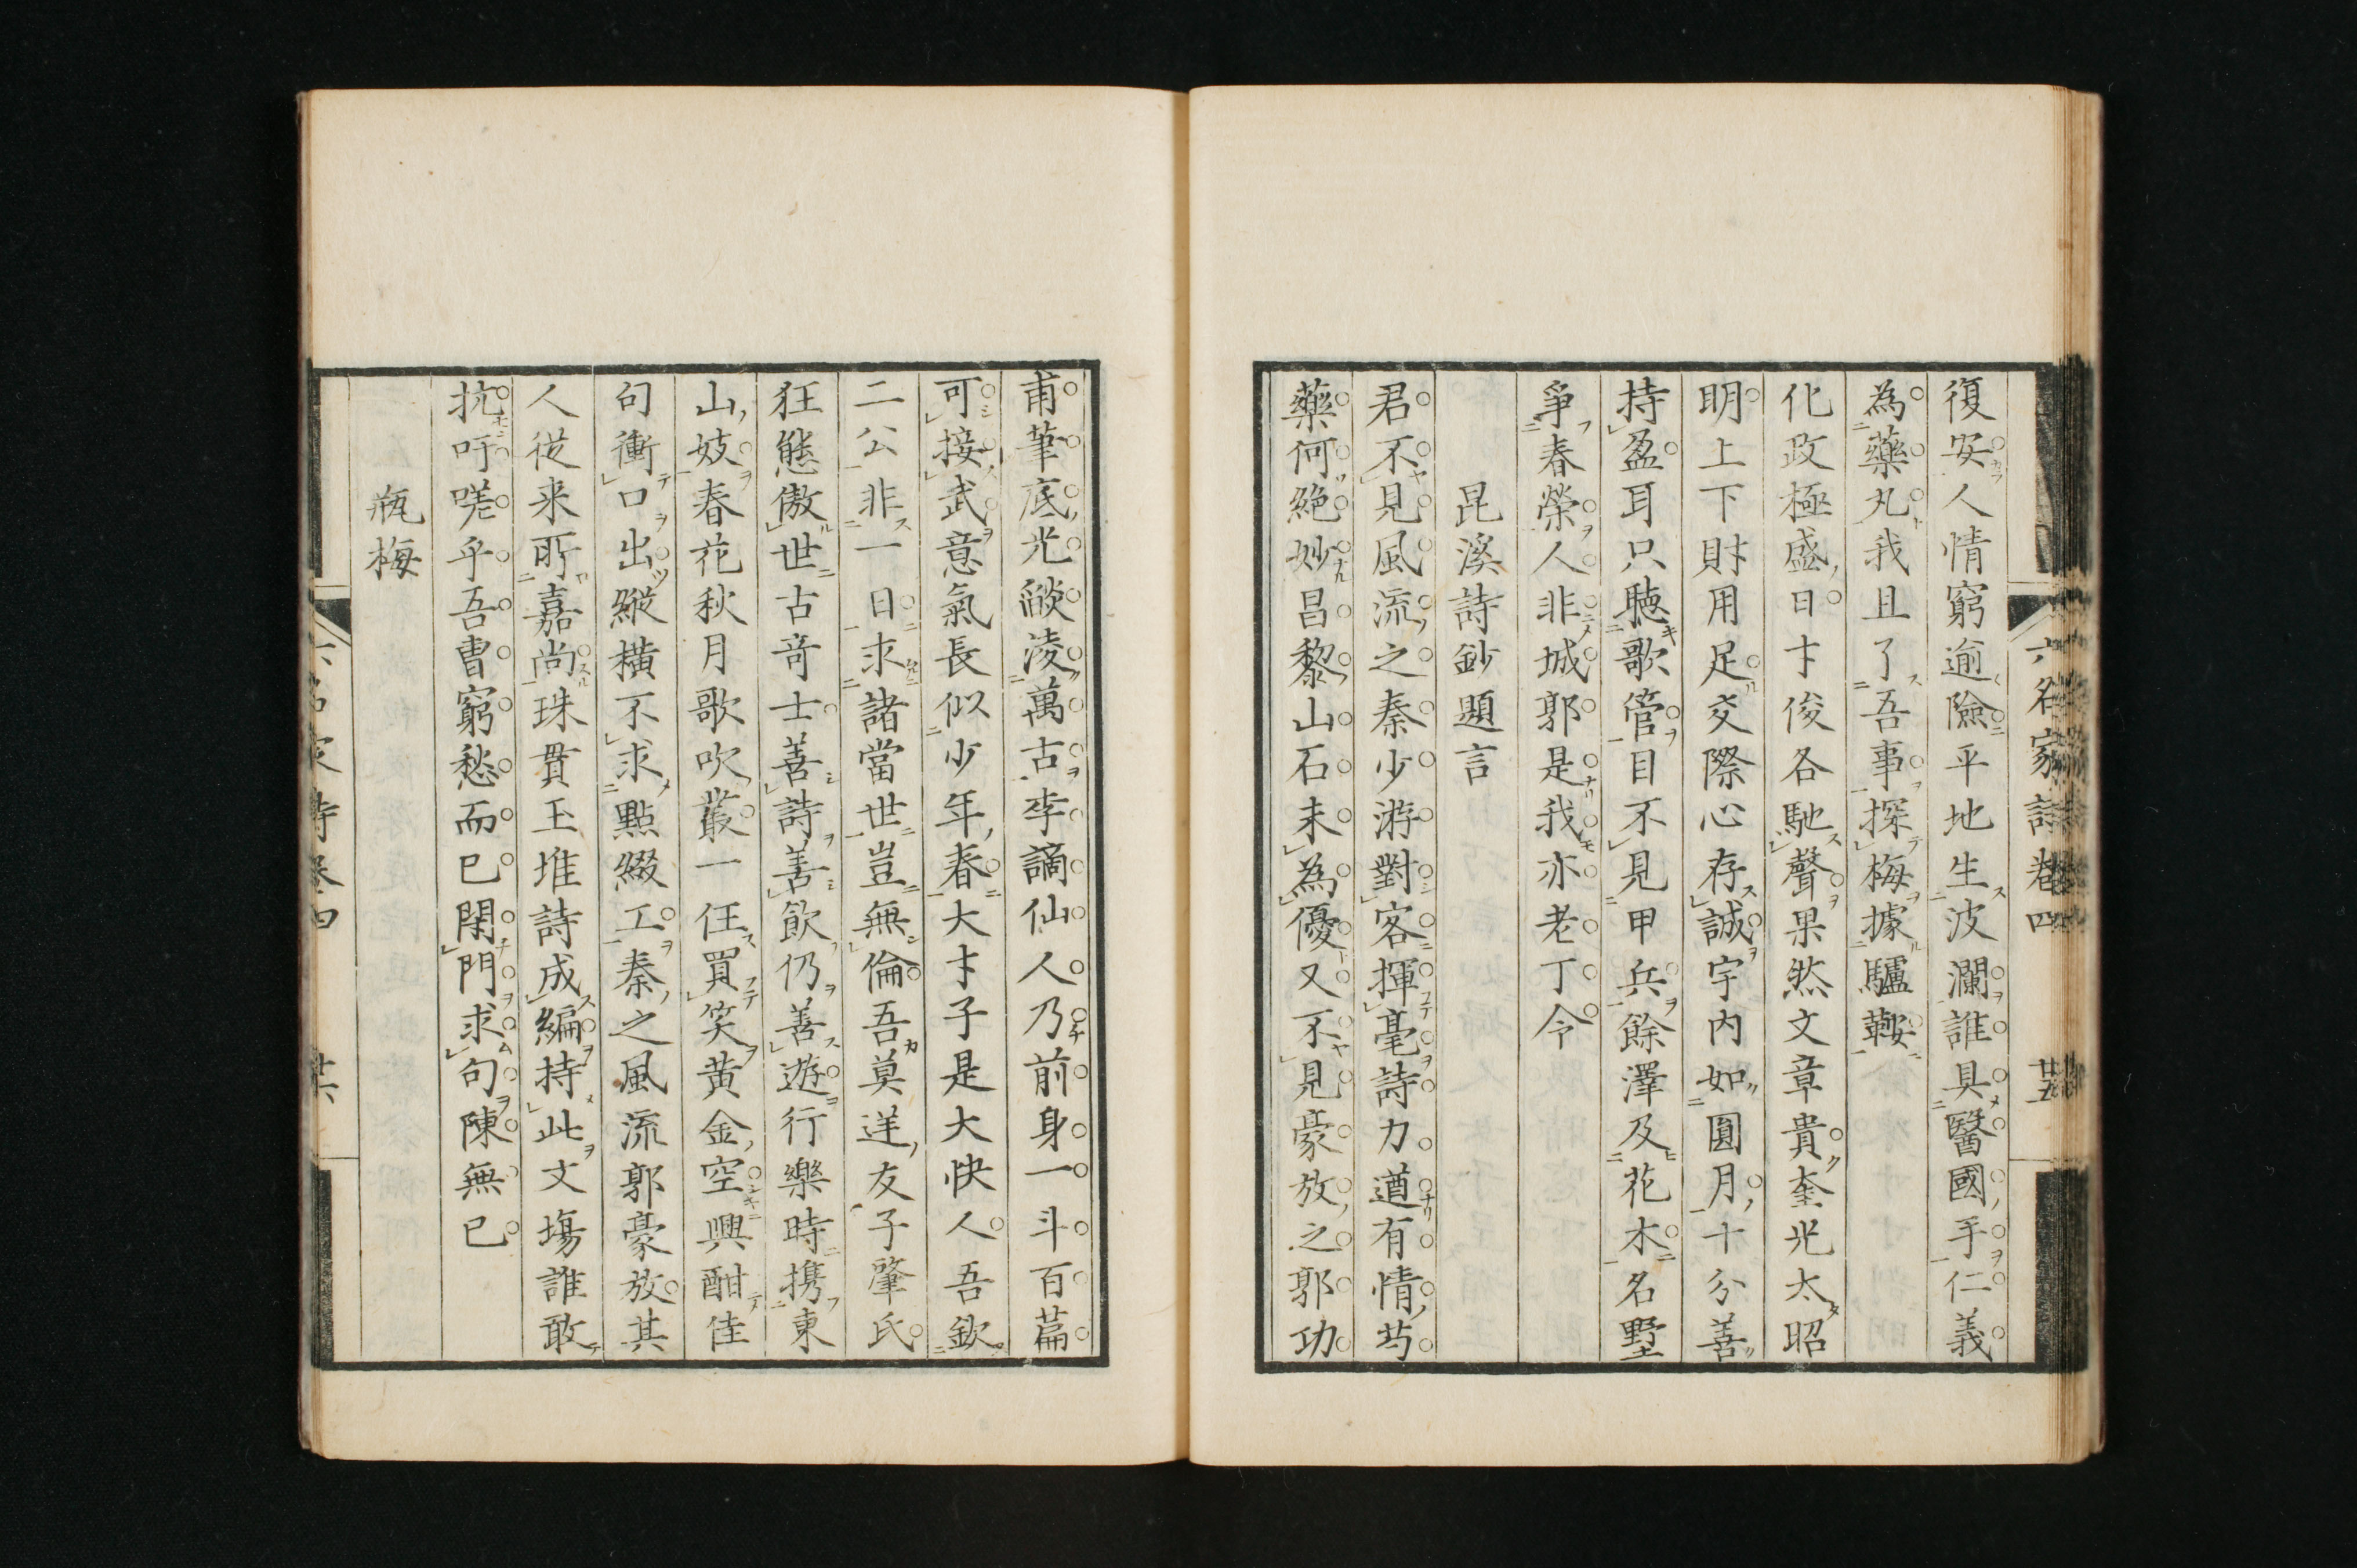 六名家詩卷四 廿五
復安人情窮逾險平地生波瀾誰具醫國手仁義
為藥丸我且了吾事探梅據驢鞍
化政極盛日才俊各馳聲果然文章貴奎光太昭
明上下財用足交際心存誠宇内如圓月十分善
持盈耳只聴歌管目不見甲兵餘澤及花木名墅
爭春榮人非城郭是我亦老丁令
昆溪詩鈔題言
君不見風流之秦少游對客揮毫詩力遒有情芍
藥何絶妙昌黎山石未為優又不見豪放之郭功
甫筆底光燄凌萬古李謫仙人乃前身一斗百篇
可接武意氣長似少年春大才子是大快人吾欽
二公非一日求諸當世豈無倫吾莫逆友子肇氏
狂態傲世古奇士善詩善飲仍善遊行樂時携東
山妓春花秋月歌吹叢一任買笑黄金空興酣佳
句衝口出縱横不求點綴工秦之風流郭豪放其
人従来所嘉尚珠貫玉堆詩成編持此文塲誰敢
抗吁嗟乎吾曹窮愁而已閉門求句陳無已
瓶梅
六名家詩卷四 廿六